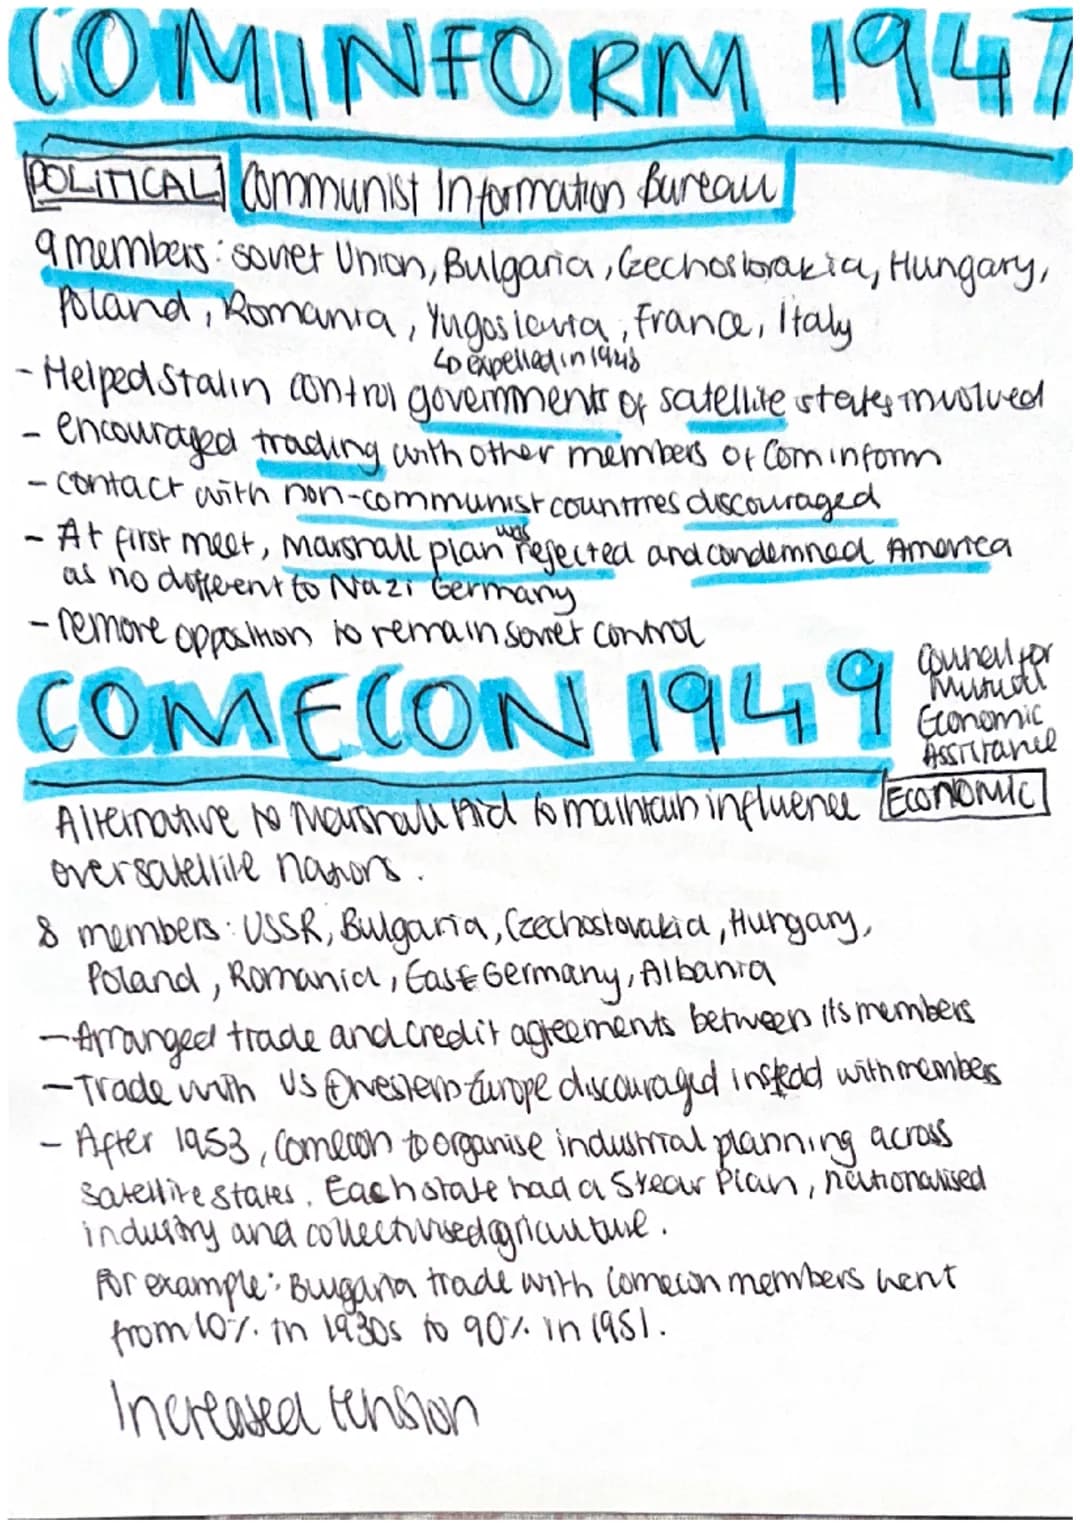 COMINFORM 1947
POLITICAL Communist Information Bureau
9 members: soviet Union, Bulgaria, Czechoslovakia, Hungary,
Poland, Romania, Yugoslavia, France, Italy
↳ expelled in 1948
- Helped Stalin control governments of satellite states involved
- encouraged trading with other members of Cominform
- contact with non-communist countries discouraged
- At first meet, Marshall plan was rejected and condemned America
as no different to Nazi Germany
- remove opposition to remain soviet control
COMECON 1949
Council for
Mutual
Economic
Assistance
ECONOMIC
Alternative to Marshall Aid to maintain influence
over satellite nations.
8 members: USSR, Bulgaria, Czechoslovakia, Hungary,
Poland, Romania, East Germany, Albania
- Arranged trade and credit agreements between its members
- Trade with US + western Europe discouraged instead with members
- After 1953, Comecon to organise industrial planning across
satellite states. Each state had a 5 year Plan, nationalised
industry and collectivised agriculture.
For example: Bulgaria trade with Comecon members went
from 10% in 1930s to 90% in 1951.
Increased tension